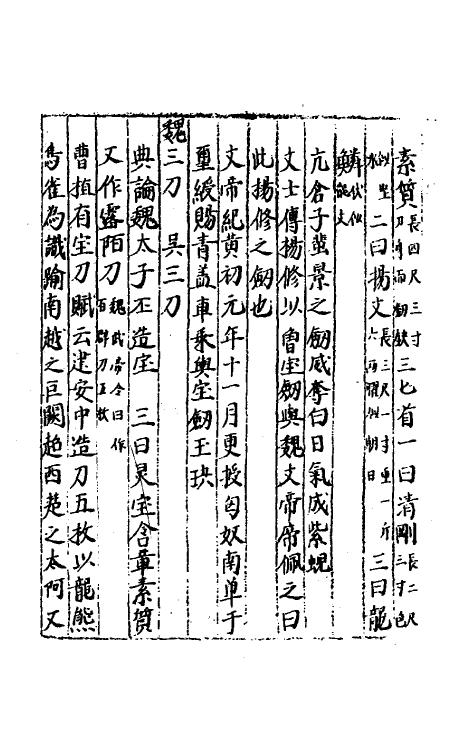 素質長四尺三寸刀身而劍鋏三匕首一曰清剛長二尺三寸色
似堅氷二曰揚文長三尺一寸重一斤六兩耀似朝日三曰龍
鱗狀似龍文
亢倉子蜚景之劍威奪白日氣成紫蜺
文士傳楊修以曾宝劍與魏文帝帝佩之曰
此楊修之劍也
文帝紀黃初元年十一月更授匈奴南单于
璽綬賜青盖車乘輿宝劍玉玦
魏三刀 吳三刀
典論魏太子丕造宝 三曰灵宝含章素質
又作露陌刀魏武帝令曰作百辟刀五枚
曹植有宝刀賦云建安中造刀五枚以龍熊
鳥雀為識踰南越之巨闕超西楚之太阿又